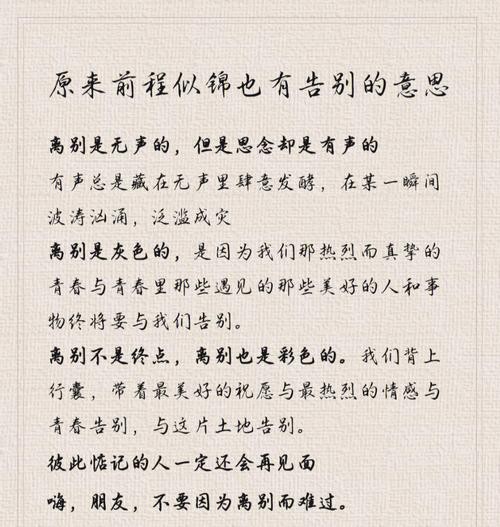 原来前程似锦也有告别的意思
离别是无声的，但是思念却是有声的
有声总是藏在无声里肆意发酵，在某一瞬间
波涛汹涌，泛滥成灾
离别是灰色的，是因为我们那热烈而真挚的
青春与青春里那些遇见的那些美好的人和事
物终将要与我们告别。
离别不是终点，离别也是彩色的。我们背上
行囊，带着最美好的祝愿与最热烈的情感与
青春告别，与这片土地告别。
彼此惦记的人一定还会再见面
嗨，朋友，不要因为离别而难过。